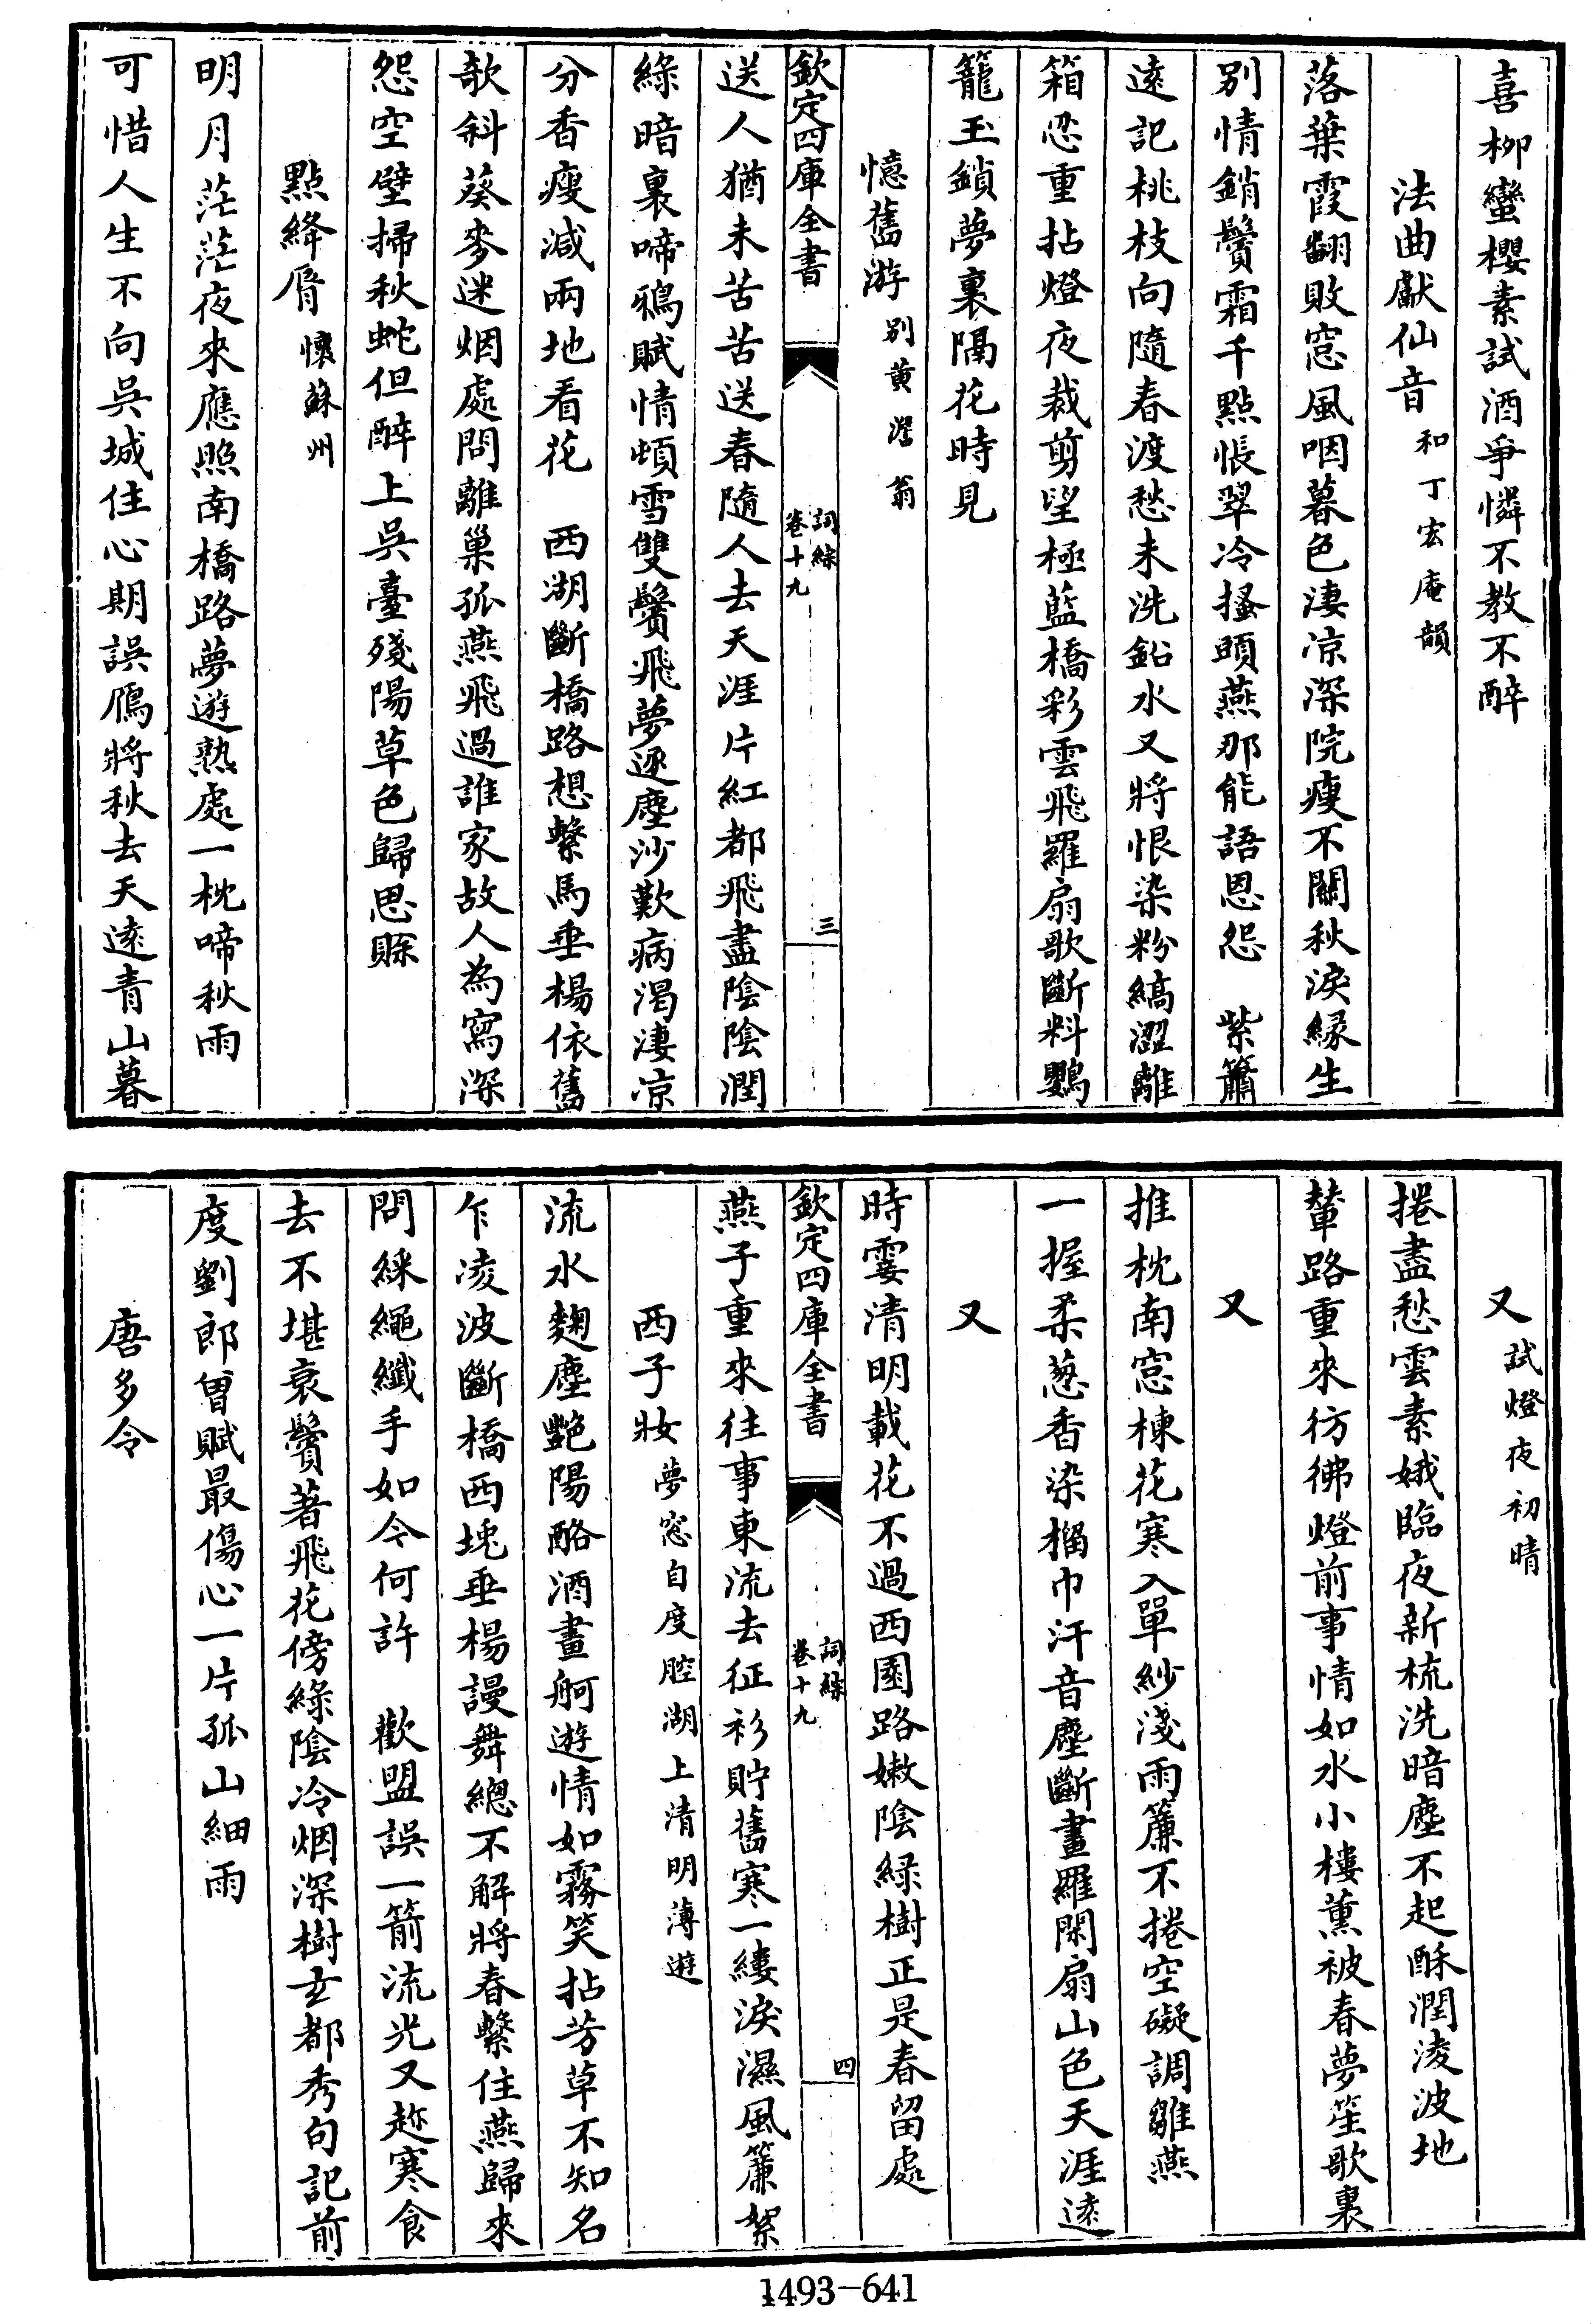 喜栁蠻櫻素試酒爭憐不教不醉
法曲獻仙音和丁宏庵韻
落葉霞翻敗窓風咽暮色淒凉深院瘦不關秋淚緣生
別情銷鬢霜千點悵翠冷搔頭燕那能語恩怨　紫簫
遠記桃枝向隨春渡愁未洗鉛水又將恨染粉縞澀離
箱忍重拈燈夜裁剪望極藍橋彩雲飛羅扇歌斷料鸚
籠玉鎖夢裏隔花時見
憶舊游別黃澹翁
欽定四庫全書
詞綜
卷十九
三
送人猶未苦苦送春隨人去天涯片紅都飛盡陰陰潤
綠暗裏啼鴉賦情頓雪雙鬢飛夢逐塵沙歎病渴淒凉
分香瘦減兩地看花　西湖斷橋路想繫馬垂楊依舊
欹斜葵麥迷烟處問離巢孤燕飛過誰家故人為寫深
怨空壁掃秋蛇但醉上吳臺殘陽草色歸思賒
點絳脣懷蘇州
明月茫茫夜來應照南橋路夢遊熟處一枕啼秋雨
可惜人生不向吳城住心期誤鴈將秋去天遠青山暮
又試燈夜初晴
捲盡愁雲素娥臨夜新梳洗暗塵不起酥潤淩波地
輦路重來彷彿燈前事情如水小樓薰被春夢笙歌裏
又
推枕南窓楝花寒入單紗淺雨簾不捲空礙調雛燕
一握柔蔥香染榴巾汗音塵斷畫羅閑扇山色天涯遠
又
時霎清明載花不過西園路嫩陰綠樹正是春留處
欽定四庫全書
詞綜
卷十九
四
燕子重來往事東流去征衫貯舊寒一縷淚濕風簾絮
西子妝夢窓自度腔湖上清明薄遊
流水麴塵艷陽酷酒畫舸遊情如霧笑拈芳草不知名
乍凌波斷橋西堍垂楊謾舞總不解將春繫住燕歸來
問綵繩纖手如今何許　歡盟誤一箭流光又趂寒食
去不堪衰鬢著飛花傍綠陰冷烟深樹玄都秀句記前
度劉郎曾賦最傷心一片孤山細雨
唐多令
1493-641